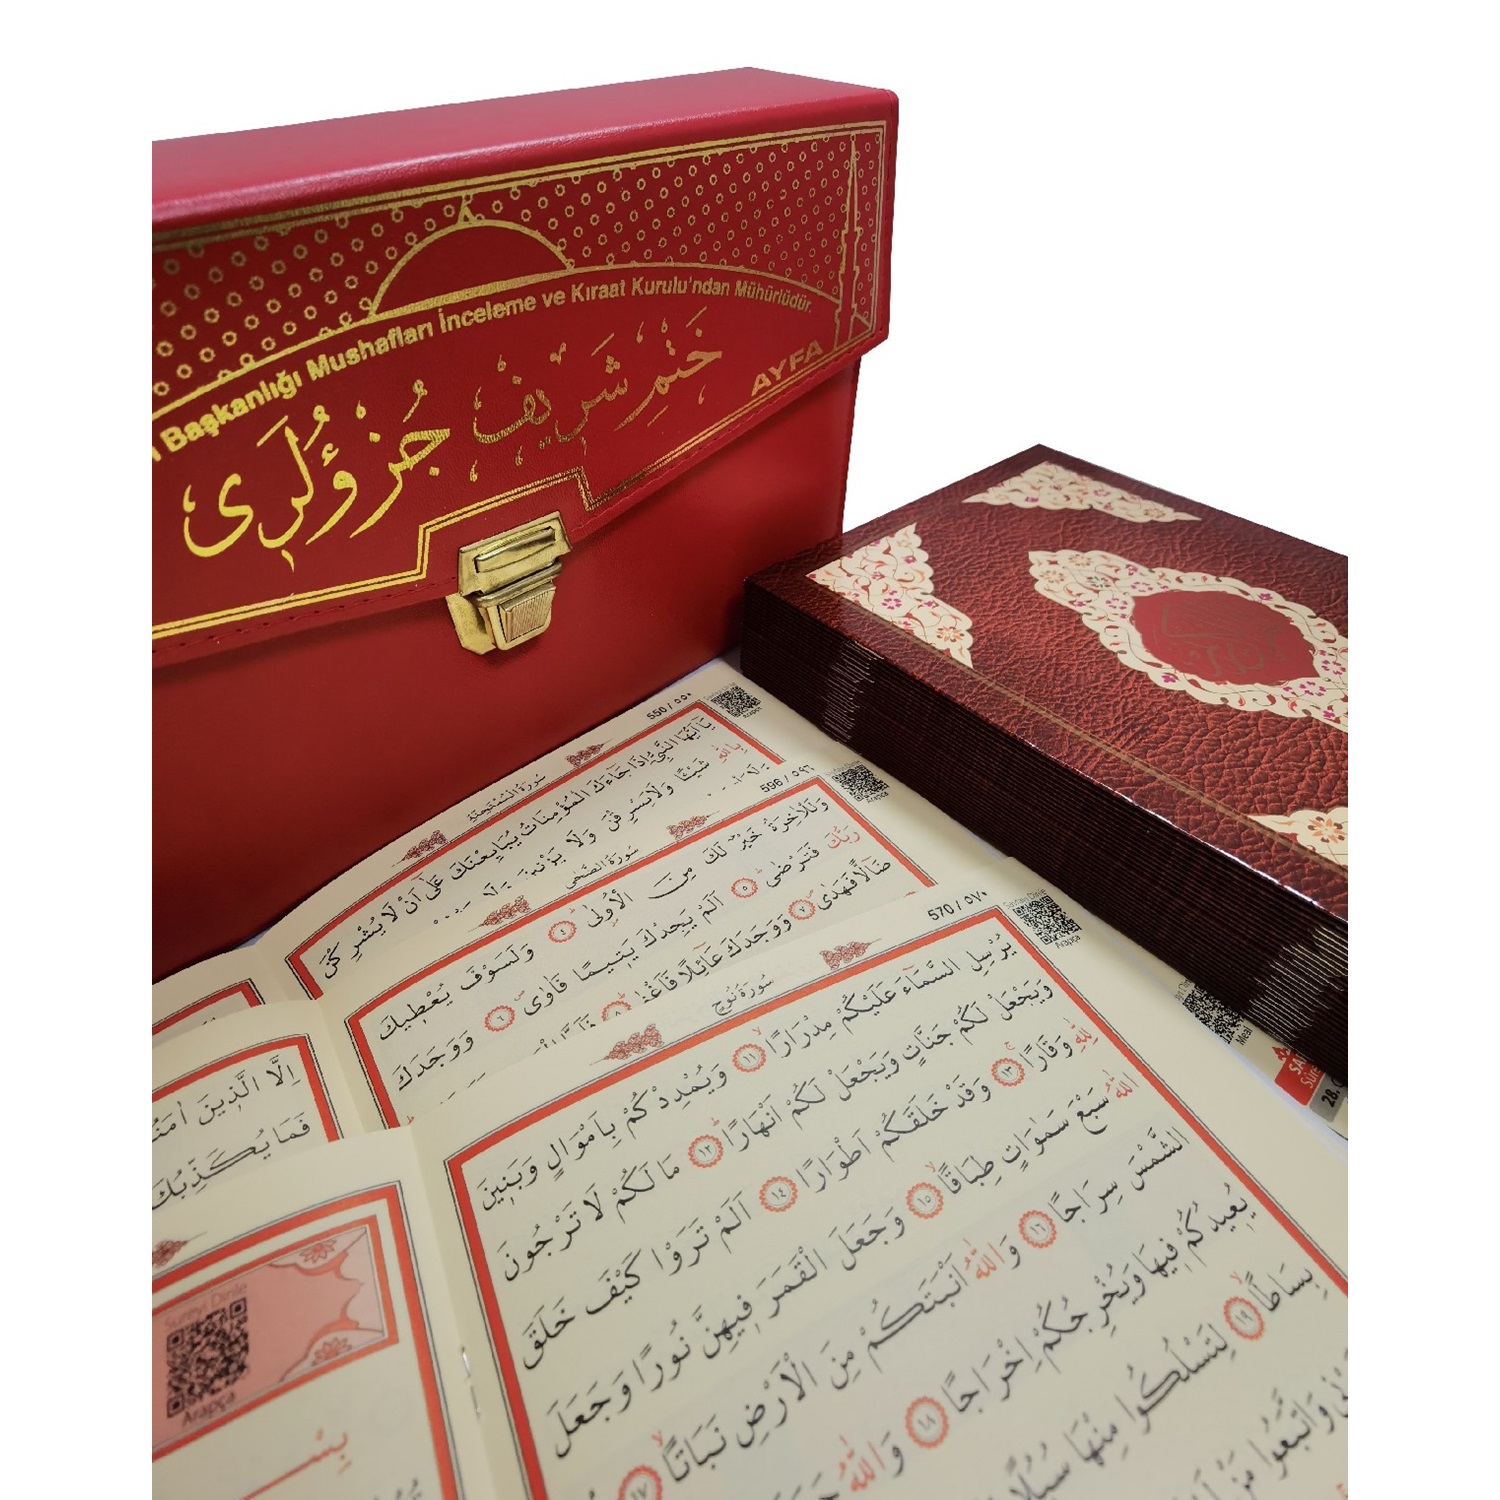 Başkanlığı Mushafları İnceleme ve Kıraat Kurulu'ndan Mühürlüdür.
خَتْمِ شَرِيفْ جُزْؤُلَرِى
AYFA
550 / ٥٥٠
Arapça
سُورَةُ الْمُمْتَحِنَةِ
يَٓا اَيُّهَا النَّبِيُّ اِذَا جَٓاءَكَ الْمُؤْمِنَاتُ يُبَايِعْنَكَ عَلٰٓى اَنْ لَا يُشْرِكْنَ
بِاللّٰهِ شَيْـًٔا وَلَا يَسْرِقْنَ وَلَا يَزْن۪ينَ
596 / ٥٩٦
Arapça
سُورَةُ الضُّحٰى
وَلَلْاٰخِرَةُ خَيْرٌ لَكَ مِنَ الْاُو۫لٰىۜ ٤ وَلَسَوْفَ يُعْط۪يكَ
رَبُّكَ فَتَرْضٰىۜ ٥ اَلَمْ يَجِدْكَ يَت۪يمًا فَاٰوٰىۖ ٦ وَوَجَدَكَ
ضَٓالًّا فَهَدٰىۖ ٧ وَوَجَدَكَ عَٓائِلًا فَاَغْنٰىۜ ٨
570 / ٥٧٠
Sureyi Dinle
Arapça
سُورَةُ نُوحٍ
يُرْسِلِ السَّمَٓاءَ عَلَيْكُمْ مِدْرَارًاۙ ١١ وَيُمْدِدْكُمْ بِاَمْوَالٍ وَبَن۪ينَ
وَيَجْعَلْ لَكُمْ جَنَّاتٍ وَيَجْعَلْ لَكُمْ اَنْهَارًاۜ ١٢ مَا لَكُمْ لَا تَرْجُونَ
لِلّٰهِ وَقَارًاۚ ١٣ وَقَدْ خَلَقَكُمْ اَطْوَارًا ١٤ اَلَمْ تَرَوْا كَيْفَ خَلَقَ
اللّٰهُ سَبْعَ سَمٰوَاتٍ طِبَاقًاۙ ١٥ وَجَعَلَ الْقَمَرَ ف۪يهِنَّ نُورًا وَجَعَلَ
الشَّمْسَ سِرَاجًا ١٦ وَاللّٰهُ اَنْبَتَكُمْ مِنَ الْاَرْضِ نَبَاتًاۙ ١٧
يُع۪يدُكُمْ ف۪يهَا وَيُخْرِجُكُمْ اِخْرَاجًا ١٨ وَاللّٰهُ
بِسَاطًاۙ ١٩ لِتَسْلُكُوا مِنْهَا سُبُلًا
وَاتَّبَعُوا مَنْ
اِلَّا الَّذ۪ينَ اٰمَنُوا
فَمَا يُكَذِّبُكَ
Sureyi Dinle
Arapça
Meal
28.